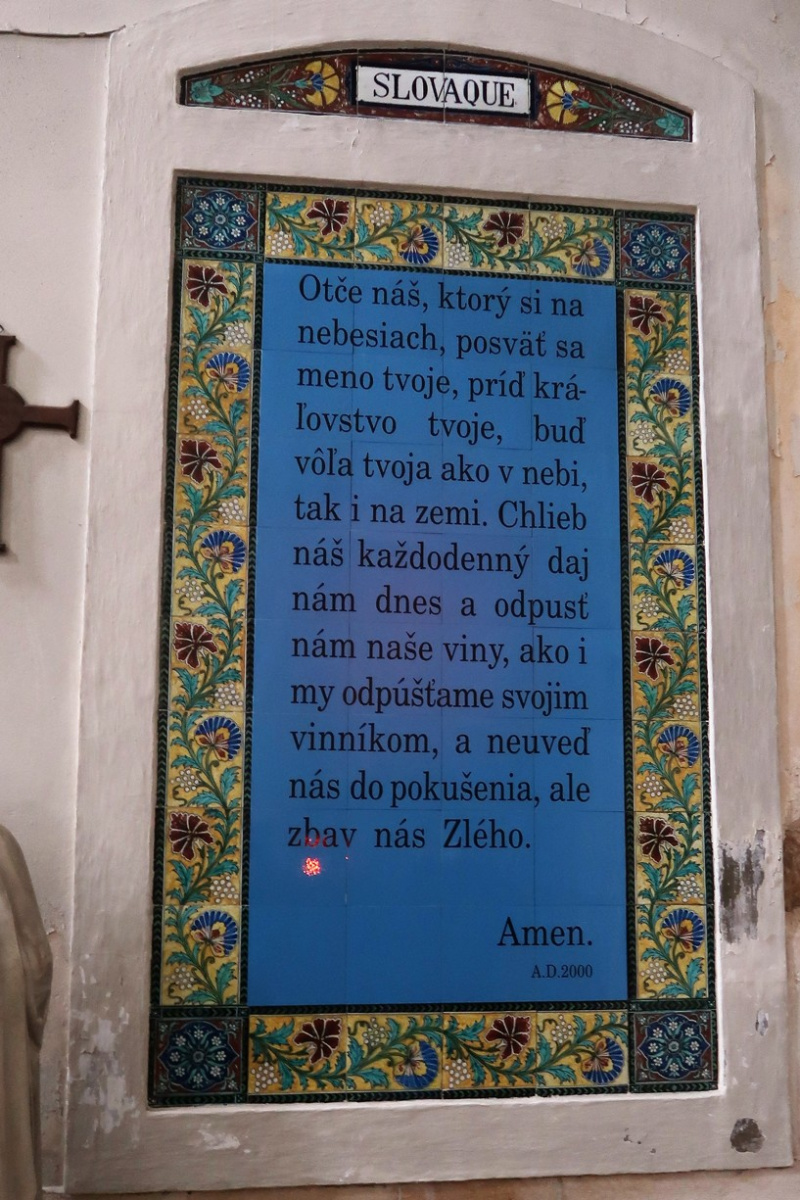 SLOVAQUE
Otče náš, ktorý si na
nebesiach, posväť sa
meno tvoje, príď krá-
ľovstvo tvoje, buď
vôľa tvoja ako v nebi,
tak i na zemi. Chlieb
náš každodenný daj
nám dnes a odpusť
nám naše viny, ako i
my odpúšťame svojim
vinníkom, a neuveď
nás do pokušenia, ale
zbav nás Zlého.
Amen.
A.D.2000